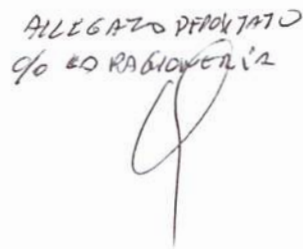 ALLEGATO DEPOSITATO
c/o LA RAGIONERIA